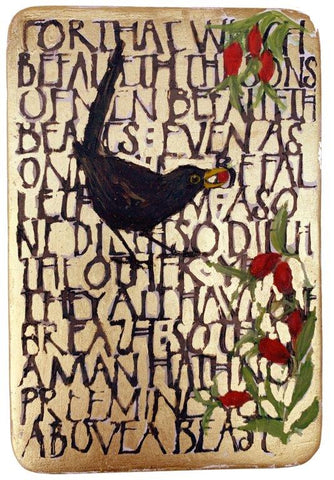 FOR THAT WHICH
BEFALLETH THE SONS
OF MEN BEFALLETH
BEASTS: EVEN AS
ON BEFAL
LETH M: AS O
NE DIETH SO DIETH
THE OTHER:
THEY ALL HAVE
BREATHE: SO TH
A MAN HATH NO
PREEMINE
ABOVE A BEAST